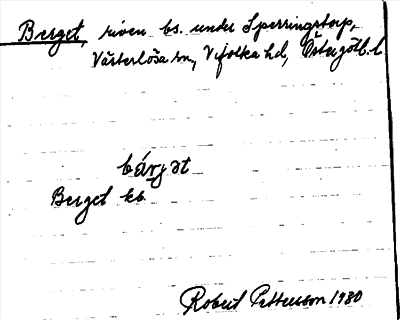 Berget, riven bs. under Sperringstorp,
Västerlösa sn, Vifolka hd, Östergötl. l
bárjət
Berget kb
Robert Pettersson 1930